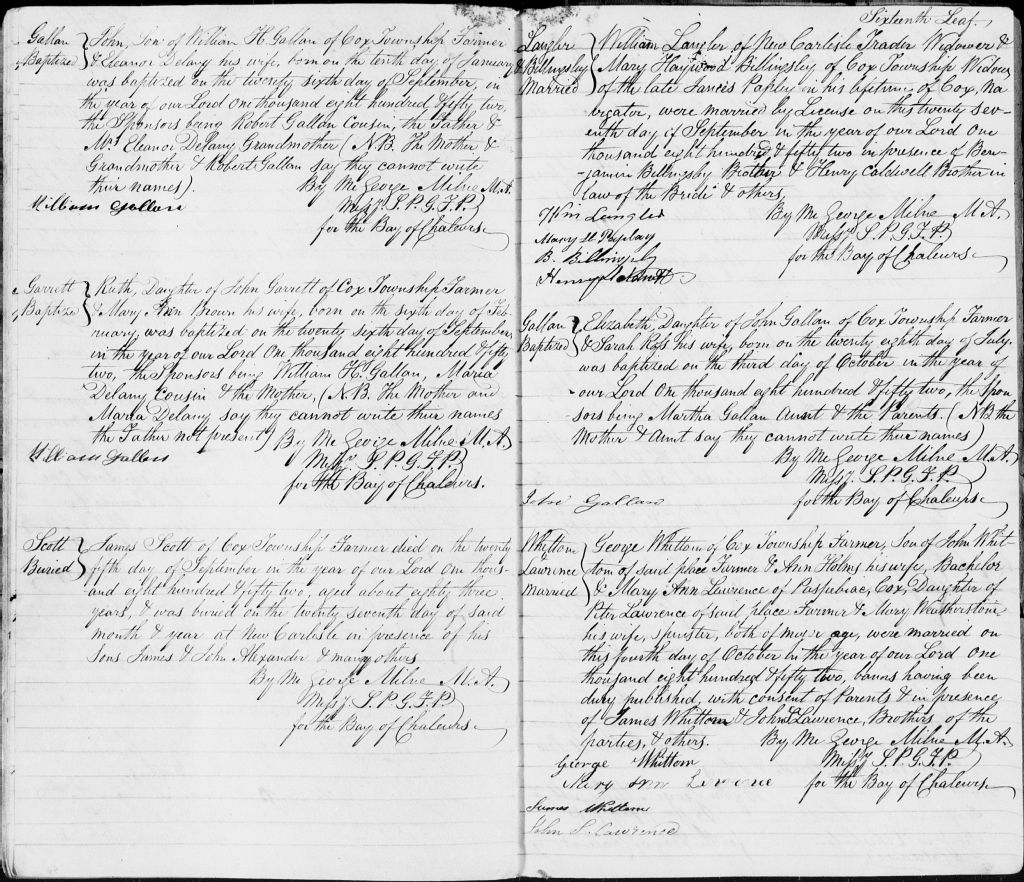 Gallan Baptized } John, Son of William H. Gallan of Cox Township Farmer
& Eleanor Delany his wife, born on the tenth day of January
was baptized on the twenty sixth day of September, in
the year of our Lord One thousand eight hundred & fifty two,
the Sponsors being Robert Gallan Cousin, the Father &
Mrs Eleanor Delany Grandmother (N.B. The Mother &
Grandmother & Robert Gallan say they cannot write
their names). By Me George Milne M.A.
William Gallan Missy. S.P.G.F.P.
for the Bay of Chaleurs.
Garrett Baptized } Ruth, Daughter of John Garrett of Cox Township Farmer
& Mary Ann Brown his wife, born on the sixth day of Feb-
ruary, was baptized on the twenty sixth day of September,
in the year of our Lord One thousand eight hundred & fifty
two, the Sponsors being William H. Gallan, Maria
Delany Cousin & the Mother, (N.B. The Mother and
Maria Delany say they cannot write their names
the Father not present) By Me George Milne M.A.
William Gallan Missy. S.P.G.F.P.
for the Bay of Chaleurs.
Scott Buried } James Scott of Cox Township Farmer died on the twenty
fifth day of September in the year of our Lord One thous-
and eight hundred & fifty two, aged about eighty three
years, & was buried on the twenty seventh day of said
month & year at New Carlisle in presence of his
Sons James & John Alexander & many others
By Me George Milne M.A.
Missy. S.P.G.F.P.
for the Bay of Chaleurs.
Sixteenth Leaf.
Langler & Billingsley Married } William Langler of New Carlisle Trader Widower &
Mary Haywood Billingsley of Cox Township Widow
of the late Francis Papley in his lifetime of Cox, Na-
vigator, were married by License on this twenty sev-
enth day of September in the year of our Lord One
thousand eight hundred & fifty two in presence of Ben-
jamin Billingsby Brother & Henry Caldwell Brother in
law of the Bride & others.
Wm Langler By Me George Milne M.A.
Mary H Papley Missy. S.P.G.F.P.
B. Billingsly for the Bay of Chaleurs.
Henry
Gallan Baptized } Elizabeth, Daughter of John Gallan of Cox Township Farmer
& Sarah Ross his wife, born on the twenty eighth day of July,
was baptized on the third day of October in the year of
our Lord One thousand eight hundred & fifty two, the Spon-
sors being Martha Gallan Aunt & the Parents. (N.B. the
Mother & Aunt say they cannot write their names)
By Me George Milne M.A.
Missy. S.P.G.F.P.
John Gallan for the Bay of Chaleurs.
Whittom Lawrence Married } George Whittom of Cox Township Farmer, Son of John Whit-
tom of said place Farmer & Ann Holms his wife, Bachelor
& Mary Ann Lawrence of Paspebiac, Cox, Daughter of
Peter Lawrence of said place Farmer & Mary Weatherstone
his wife, spinster, both of major age, were married on
this fourth day of October in the year of our Lord One
thousand eight hundred & fifty two, banns having been
duly published, with consent of Parents & in presence
of James Whittom & John L Lawrence, Brothers of the
parties, & others. By Me George Milne M.A.
George Whittom Missy. S.P.G.F.P.
Mary Ann for the Bay of Chaleurs.
James Whittom
John S. Lawrence